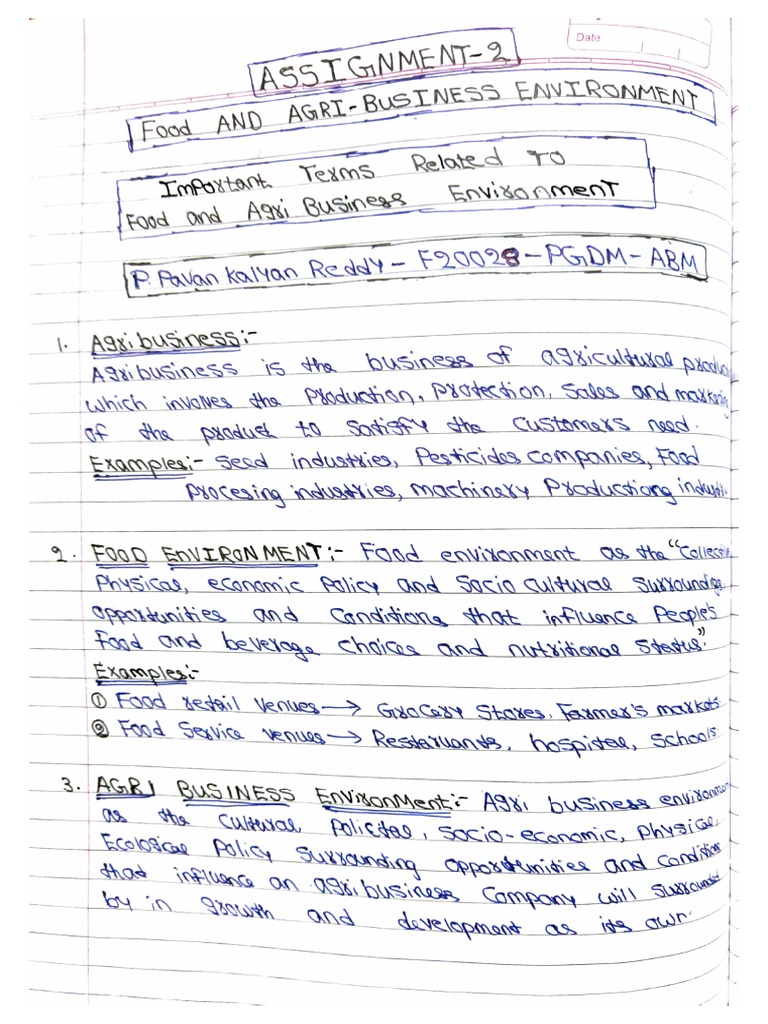 Date
ASSIGNMENT-2
Food AND AGRI-BUSINESS ENVIRONMENT
Important Terms Related TO
Food and Agri Business Environment
P. Pavan Kalyan Reddy - F20028 - PGDM - ABM
1. Agribusiness:-
Agribusiness is the business of agricultural produc
which involves the Production, Protection, Sales and marketing
of the product to Satisfy the Customers need.
Examples:- Seed industries, Pesticides companies, Food
Procesing industries, machinery Productiong industri.
2. FOOD ENVIRONMENT:- Food environment as the "Collective
Physical, economic Policy and Socio Cultural Surroundings
opportunities and Conditions that influence People's
Food and beverage choices and nutritional Status."
Examples:-
① Food retail venues → Grocery Stores, Farmer's markets
② Food Service venues → Restaruants, hospital, Schools
3. AGRI BUSINESS Environment:- Agri business environmen
as the Cultural Political, Socio-economic, Physical,
Ecological Policy Surrounding opportunities and Condition
that influence an agribusiness Company will Surrounded
by in growth and development as its own.